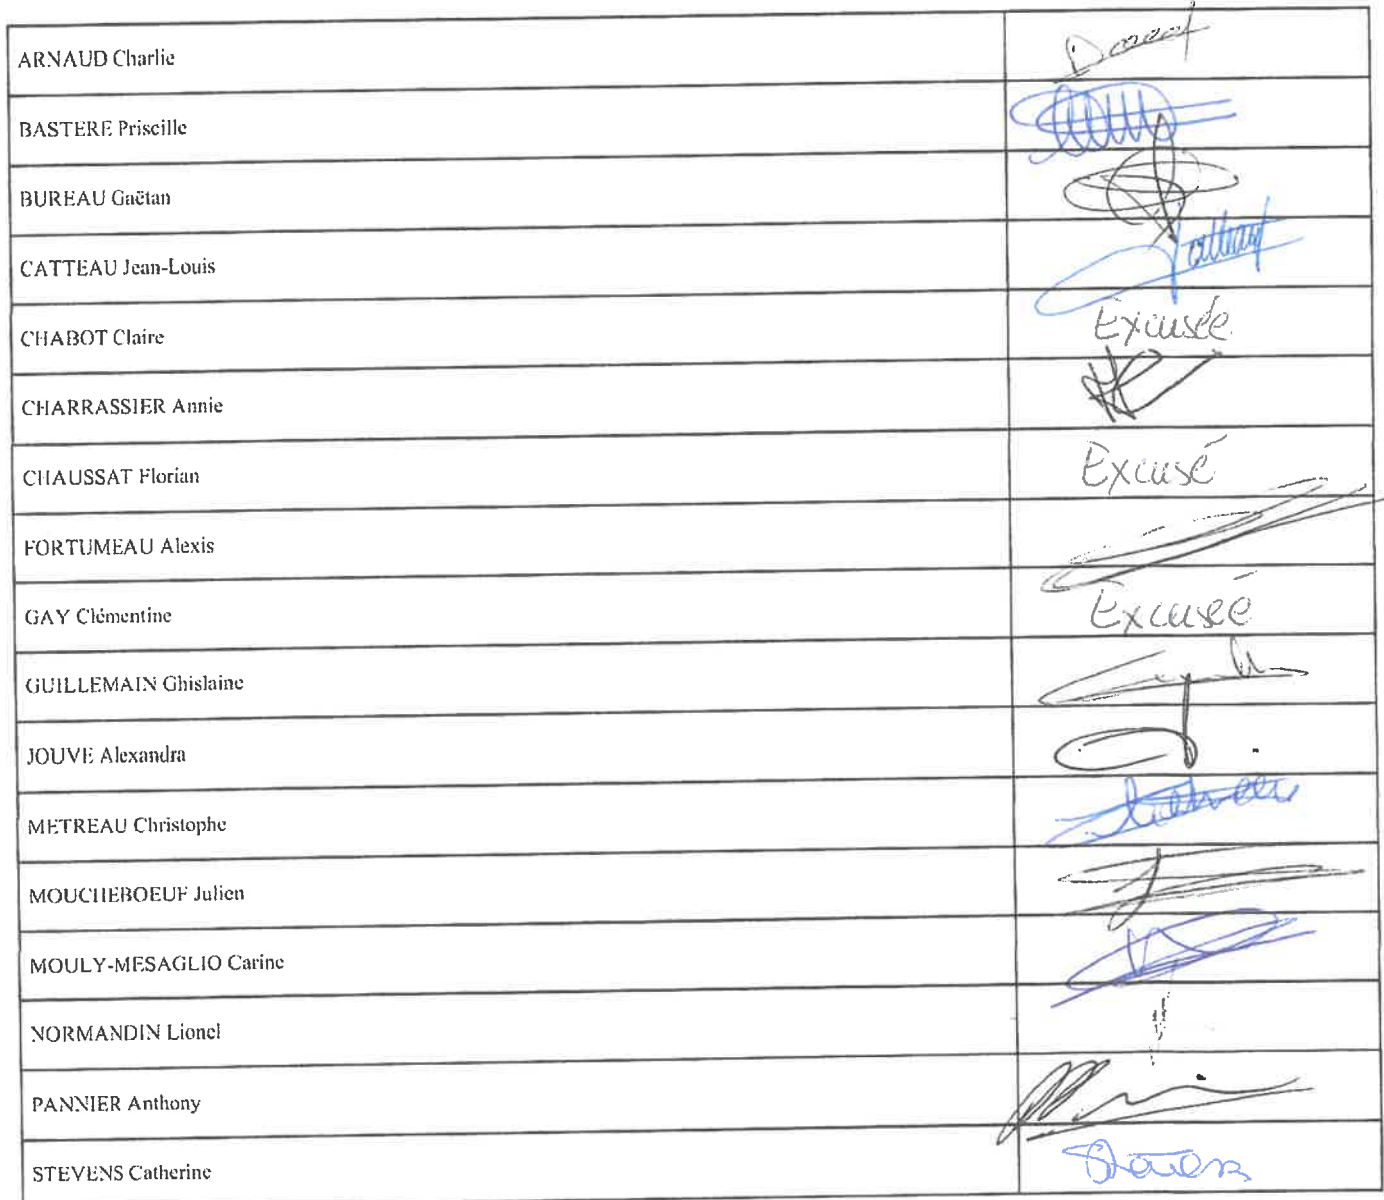 ARNAUD Charlie
BASTERE Priscille
BUREAU Gaëtan
CATTEAU Jean-Louis
CHABOT Claire Excusée
CHARRASSIER Annie
CHAUSSAT Florian Excusé
FORTUMEAU Alexis
GAY Clémentine Excusée
GUILLEMAIN Ghislaine
JOUVE Alexandra
METREAU Christophe
MOUCHEBOEUF Julien
MOULY-MESAGLIO Carine
NORMANDIN Lionel
PANNIER Anthony
STEVENS Catherine Stevens